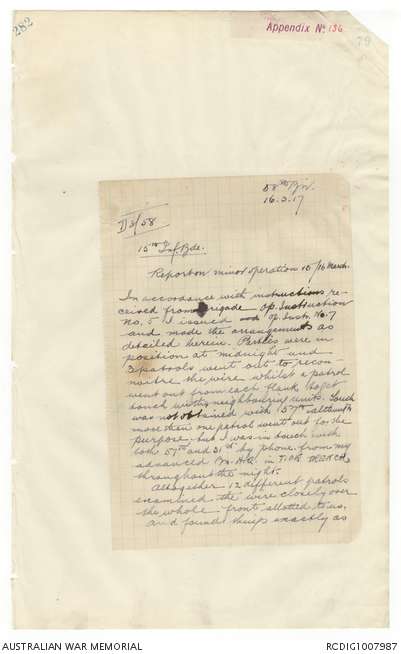 282
Appendix No 136
79
58th Bn.
16.3.17
D3/58
15th Inf. Bde.
Report on minor operation 15/16 March.
In accordance with instructions re-
ceived from Brigade Op. Instruction
No. 5 I issued Op. Instr. No. 7
and made the arrangements as
detailed herein. Parties were in
position at midnight and
3 patrols went out to recon-
noitre the wire whilst a patrol
went out from each flank to get
touch with neighbouring units. Touch
was not obtained with 57th although
more than one patrol went out for the
purpose - but I was in touch with
both 57th and 31st by phone from my
advanced Bn. H.Q. in TRENCH
throughout the night.
Altogether 12 different patrols
examined the wire closely over
the whole front allotted to us,
and found things exactly as
AUSTRALIAN WAR MEMORIAL
RCDIG1007987